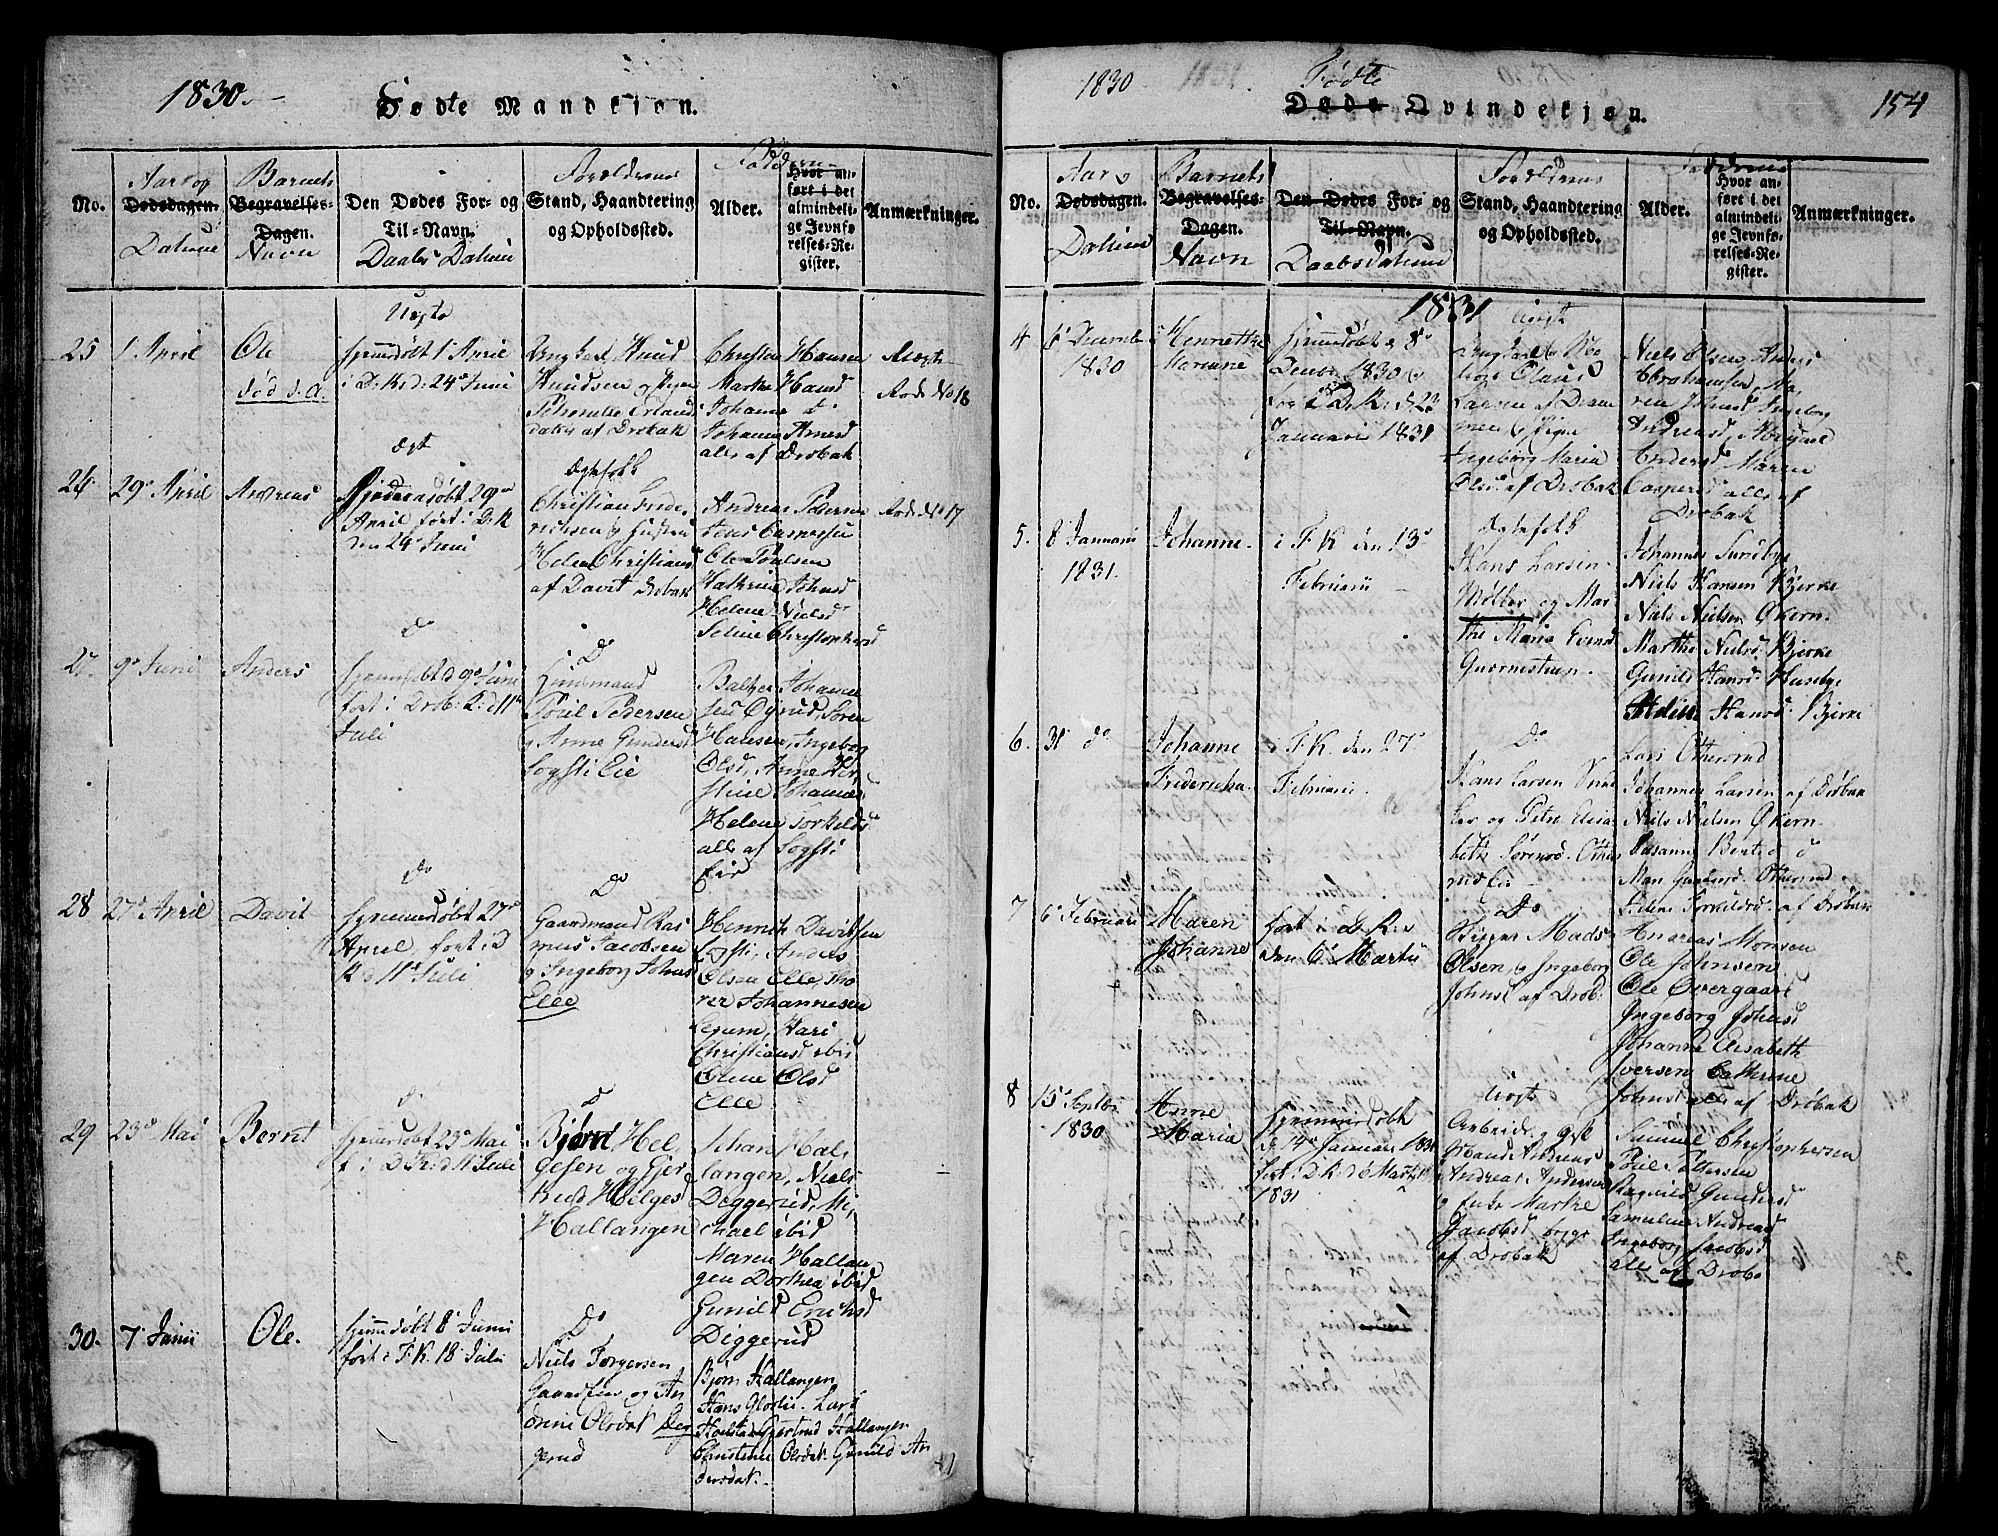 1830.
Fødte Mandkjøn.
No.
Aar og
Dødsdagen.
Datum
Barnets
Begravelses-
Dagen.
Navn
Den Dødes For- og
Til-Navn.
Daabs Datum
Forældrenes
Stand, Haandtering
og Opholdssted.
Alder.
Faddere
Hvor an-
ført i det
almindeli-
ge Jevnfø-
relses-Re-
gister.
Anmærkninger.
25
1 April
Ole
død s. A.
Uægte
hjemmedøbt 1 April
i D. K. d. 24 Juni
Ungkarl Knud
Knudsen og Pigen
Petronelle Erlands
datter af Drøbak
Christen Hansen
Marthe Hansd
Johanne
Johanne Arnesd
alle af Drøbak
Uægte
No 18
26
29 April
Andreas
Ægt
hjemmedøbt 29
April ført i D. K
den 24 Juni
Ægtefolk
Christian Frede
riksen og Hustru
Helene Christians
af Davit Drøbak
Andreas Pedersen
Ole Poulsen
Kathrine Johnsd
Helene Nielsd
Seline Christophersd
No 17
27
9 Juni
Anders
Do
hjemmedøbt d 9 Juni
ført i Drøb. K. d 11
Juli
Do
Huusmand
Poul Pedersen
og Anne Gundersd
Sogsti Eie
Baltzer Johanne
sen Øyrud, Søren
Hansen, Ingeborg
Olsd, Anne Kir
stine Johannes
Helene Torkelds
alle af Sogsti
Eie
28
27 April
Davit
Do
hjemmedøbt 27
April ført i D
K d 11 Juli
Do
Gaardmand Ras
mus Jacobsen
og Ingeborg Johns
Elle
Henrich Davitsen
Sogsti, Anders
Olsen Elle, Tho
rer Johannesen
Legum, Kari
Christiansd ibid
Oline Olsd
Elle
29
23 Mai
Bernt
Do
hjemmedøbt 23 Mai
f. i D K. d 11 Juli
Do
Bjørn Hel
gesen og Gjer
trud Helgesd
Hallangen
Johan Hal
langen, Niels
Diggerud, Mi
chael ibid
Maren Hallan
gen Dorthea ibid
Gunild Erichsd
Diggerud
30.
7 Juni
Ole.
hjemmedøbt 8 Juni
ført i F. K. 18 Juli
Do
Niels Torgersen
og An
drine Olsdat Deg
gerud
Bjørn Hallangen
Hans Glosli. Lars
Holstad Gjertrud Hallangen
Christine Olsdat. Gunild An
dersdat.
1830
Fødte
Døde Qvindekjøn.
154
No.
Aar og
Dødsdagen.
Datum
Barnets
Begravelses-
Dagen.
Navn
Den Dødes For- og
Til-Navn.
Daabsdatum
Forældrenes
Stand, Haandtering
og Opholdssted.
Alder.
Faddrene
Hvor an-
ført i det
almindeli-
ge Jevnfø-
relses-Re-
gister.
Anmærkninger.
1831
4
6 Decembr
1830
Hennethe
Mariane
hjemmedøbt d 8
Decbr 1830 og
D. K. d 23
Januari 1831
Uægte
Ungkarl
Olaus
Larsen af Dram
men og Pigen
Ingeborg Maria
Olsd. af Drøbak
Niels Olsen, Anders
Abrahamsen, Ma
ren Johnsd, Ingeborg
Andreasd,
Andersd Maren
Caspersd alle af
Drøbak
5.
8 Januari
1831.
Johanne
i F. K den 13
Februarii
Ægtefolk
Hans Larsen
Møller og Mar
the Maria Evensd
Johannes Sundbye
Niels Hansen Kjerke
Niels Nielsen Økern
Marthe Nielsd Bjerke
Gunild Hansd Huseby
Hansd Bjerke
6.
31 do
Johanne
Fredericha
i F. K. den 27
Februari
Do
Hans Larsen Sned
ker og Petre Elisa
beth Sørensd. Otter
rud Eie
Lars Ottersrud
Johannes Larsen af Drøbak
Niels Nielsen Økern
Susanne Bentsd d
Mari Gundersd. Ottersrud
Helene Torkildsd. af Drøbak
7
6 Februari
Maren
Johanne
ført i D. K.
den 6 Martii
Do
Mads
Olsen, og Ingeborg
Johnsd af Drøb.
Andreas Monsen
Ole Johnsen
Ole Overgaard
Ingeborg Johnsd
Johanne Elisabeth
Iversen Cathrine
Johnsd alle af Drøbak
8
15 Septbr
1830
Anne
Maria
hjemmedøbt
d 14 Januari 1831
ført i D. K. d 6 Marts
1831
Uægte
Arbeids
Mand Andreas
Andreas Andersen
og Enke Marthe
Jacobsd begge
af Drøbak
Samuel Christophersen
Poul Pettersen
Ragnild Gundersd
Samueline Andreasd
Ingeborg Jacobsd
alle af Drøbak